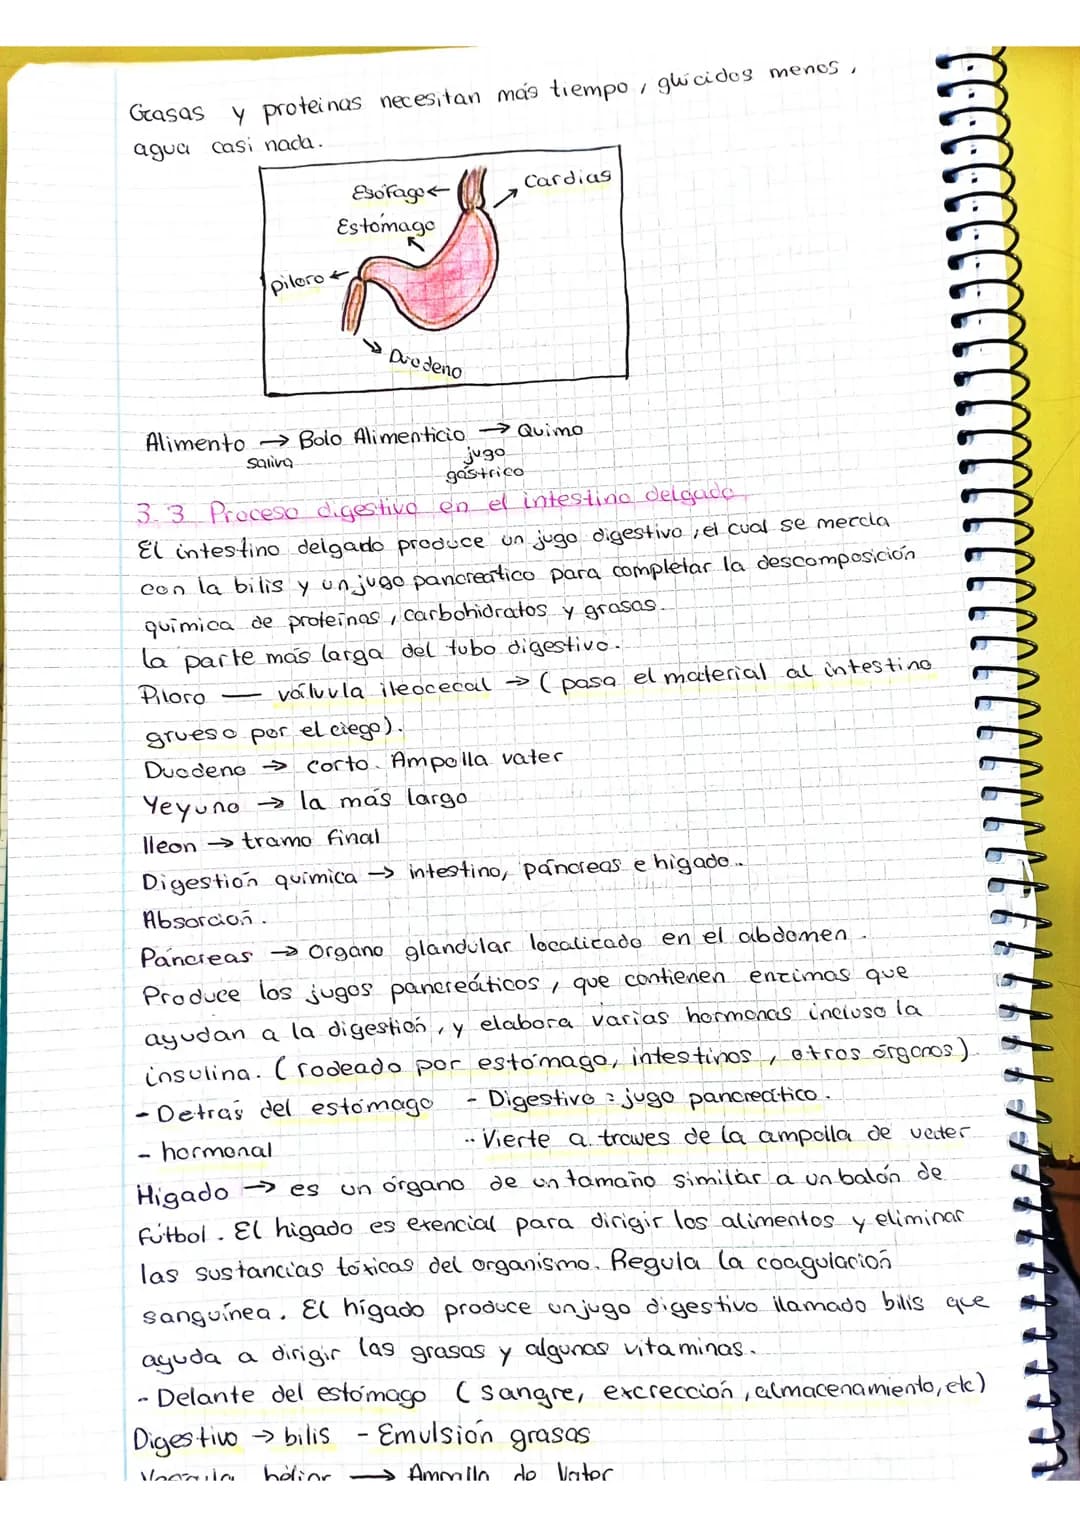 Grasas y proteinas necesitan más tiempo, glucidos menos,
agua casi nada.
Esófago
Cardias
Estómago
piloro
Duodeno
Alimento → Bolo Alimenticio → Quimo
saliva
jugo
gástrico
3.3 Proceso digestivo en el intestino delgado
El intestino delgado produce un jugo digestivo, el cual se mezcla
con la bilis y un jugo pancreático para completar la descomposición
química de proteínas, carbohidratos y grasas.
la parte más larga del tubo digestivo.
Piloro — válvula ileocecal → (pasa el material al intestino
grueso por el ciego).
Duodeno → corto. Ampolla vater
Yeyuno → la más largo
Ileon → tramo final
Digestión química → intestino, páncreas e higado..
Absorción.
Páncreas → Organo glandular localizado en el abdomen.
Produce los jugos pancreáticos, que contienen enzimas que
ayudan a la digestión, y elabora varias hormonas incluso la
insulina. (rodeado por estómago, intestinos, otros órganos).
- Detrás del estómago - Digestivo: jugo pancreático.
- hormonal -- Vierte a traves de la ampolla de vater
Higado → es un órgano de un tamaño similar a un balón de
fútbol. El higado es exencial para dirigir los alimentos y eliminar
las sustancias tóxicas del organismo. Regula la coagulación
sanguínea. El hígado produce un jugo digestivo llamado bilis que
ayuda a dirigir las grasas y algunas vitaminas.
- Delante del estómago (sangre, excrección, almacenamiento, etc)
Digestivo → bilis - Emulsión grasas
→ Ampolla de Vater